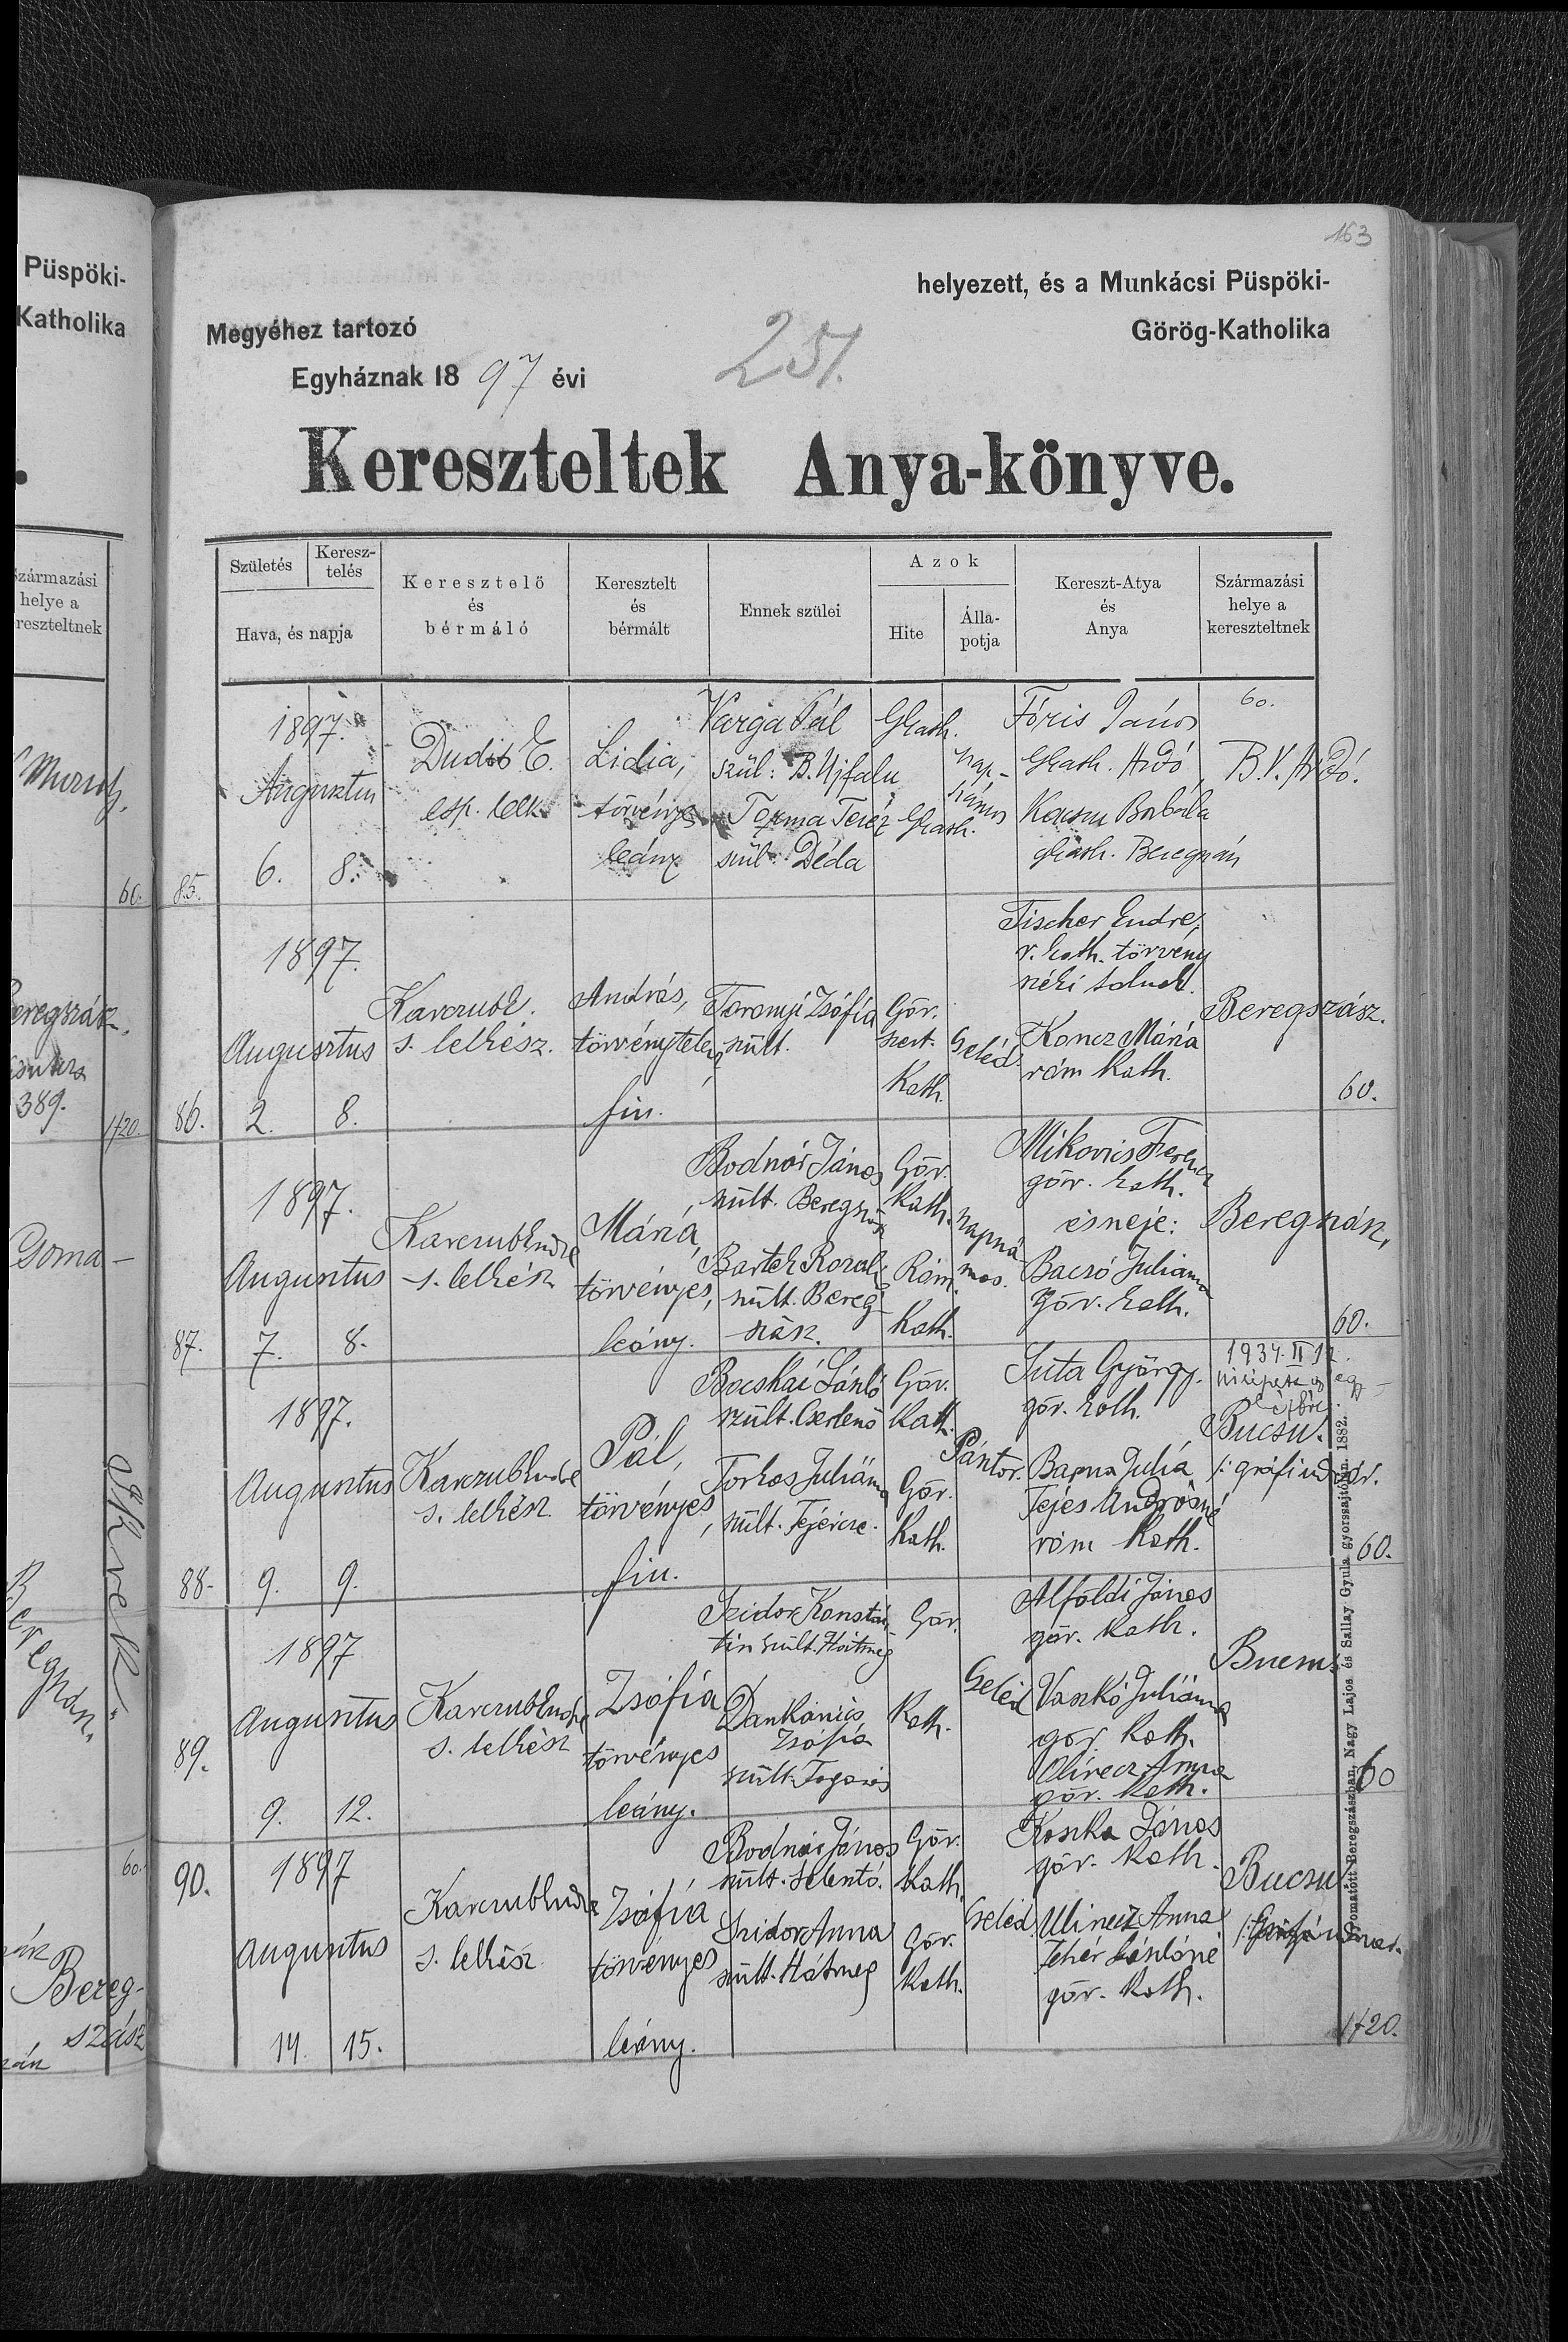 Püspöki-
Katholika
Származási
helye a
kereszteltnek
60.
Beregszász.
389.
1f20.
60.
Bereg-
szász
163
helyezett, és a Munkácsi Püspöki-
Megyéhez tartozó
Görög-Katholika
Egyháznak 1897 évi
251.
Kereszteltek Anya-könyve.
Születés
Keresz-
telés
Hava, és napja
Keresztelö
és
bérmáló
Keresztelt
és
bérmált
Ennek szülei
Azok
Hite
Álla-
potja
Kereszt-Atya
és
Anya
Származási
helye a
kereszteltnek
85.
1897.
Augusztus
6. 8.
Dudits E.
esp. lelk.
Lidia,
törvényes
leány
Varga Pál
szül: B. Ujfalu
Terma Teréz
szül: Déda
GKath.
GKath.
nap-
számos
Fóris János
GKath. Ardó
Kacsu Borbála
GKath. Beregszász
60.
B. V. Ardó.
86.
1897.
Augusztus
2. 8.
Karczub E.
s. lelkész.
András,
törvénytelen
fiu.
Toronyi Zsófia
szült.
Gör.
szert.
Kath.
Cseléd.
Fischer Endre,
r. kath. törvény
széki
Koncz Mária
róm Kath.
Beregszász.
60.
87.
1897.
Augusztus
7. 8.
Karczub Endre
s. lelkész
Mária,
törvényes,
leány.
Bodnár János
szült. Beregszász
Bartek Rozali
szült. Bereg-
szász.
Gör.
Kath.
Róm.
Kath.
napszá
mos.
Mikovics Ferencz
gör. kath.
és neje:
Bacsó Juliánna
gör. kath.
Beregszász,
60.
88.
1897.
Augusztus
9. 9.
Karczub Endre
s. lelkész
Pál,
törvényes,
fiu.
Bocskai László
szült. Cserlenő
Torkos Juliánna
szült. Fejércse.
Gör.
Kath.
Gör.
Kath.
Pásztor.
Suta György.
gör. kath.
Bapna Julia
Fejes Andrásné
róm Kath.
1934. II 12.
Bucsu.
/: gráfi udvar.
60.
89.
1897
Augusztus
9. 12.
Karczub Endre
s. lelkész
Zsófia
törvényes
leány.
Szidor Konstán-
tin szült. Hátmeg
Dankanics
Zsófia
szült. Fogaras
Gör.
Kath.
Cseléd
Alföldi János
gör. kath.
Vaskó Juliánna
gör. kath.
Olinecz Anna
gör. kath.
Bucsu.
60
90.
1897
Augusztus
14. 15.
Karczub Endre
s. lelkész
Zsófia
törvényes
leány.
Bodnár János
szült. Szlentó.
Szidor Anna
szült. Hátmeg
Gör.
Kath.
Gör.
Kath.
Cseléd
Koszka János
gör. Kath.
Ulinecz Anna
Fehér Lászlóné
gör. Kath.
Bucsu
/: Gráfi udvar.
1f20.
Nyomatott Beregszászban, Nagy Lajos és Sallay Gyula gyorssajtóján. 1882.